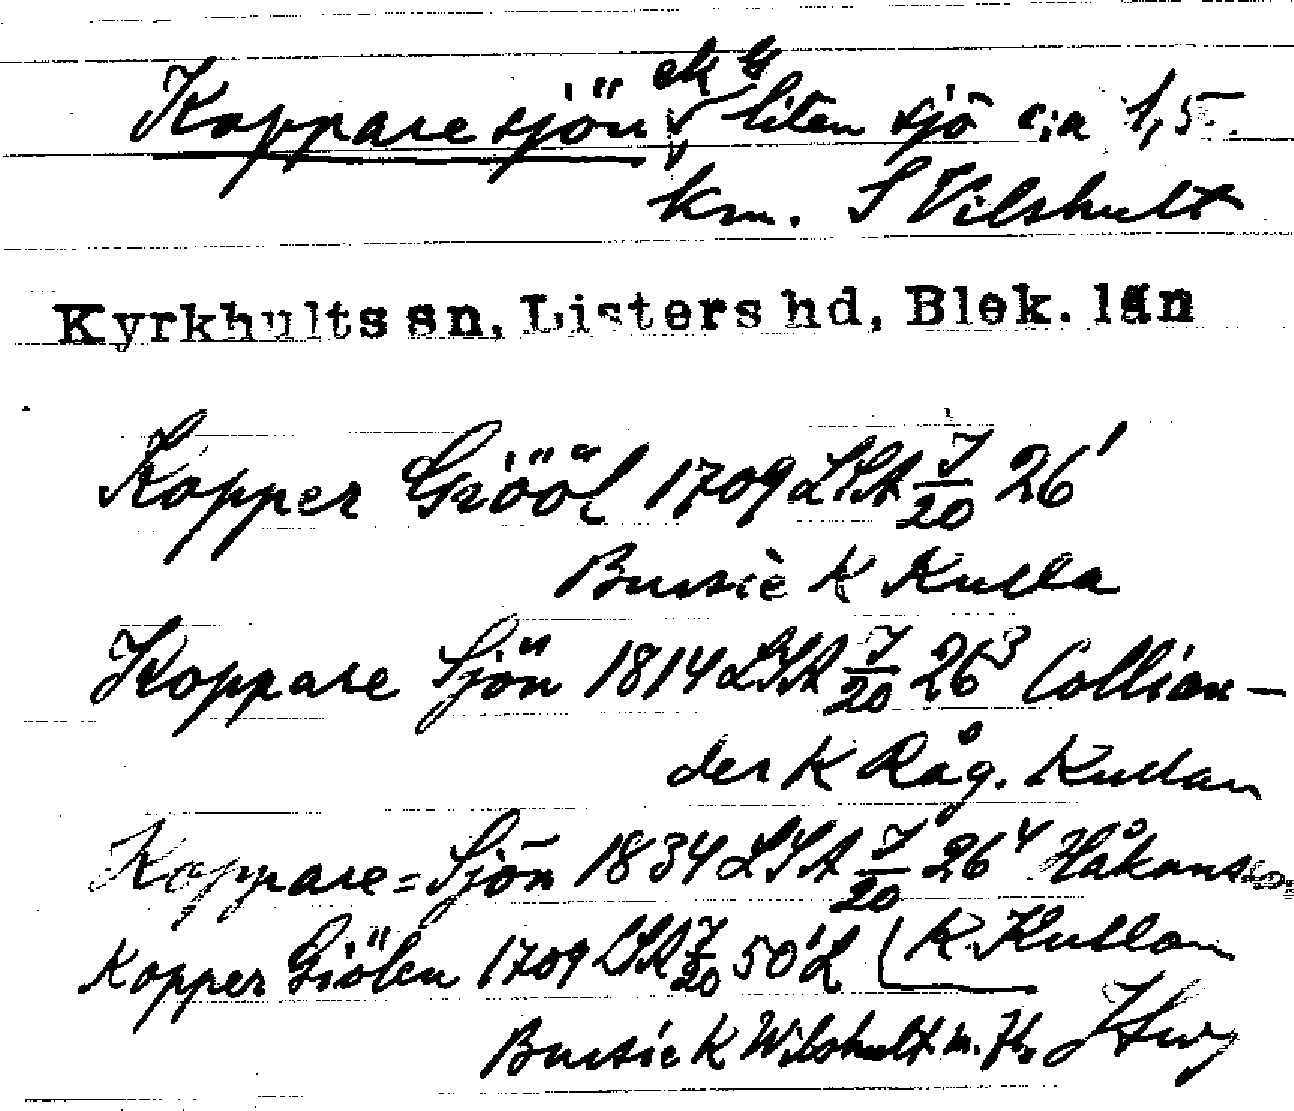 Kopparesjön ek G liten sjö c:a 1,5
km. S Vilshult
Kyrkhults sn, Listers hd, Blek. län
Kopper Giööl 1709 LSA J/20 26¹
Bursie K Kulla
Koppare Sjön 1814 LSA J/20 26³ Collian-
der K Råg. Kullan
Koppare=Sjön 1834 LSA J/20 26⁴ Håkansson
K. Kullan
Kopper Giölen 1709 LSA J/20 50¹ L
Bursie K Wilshult m. fl.